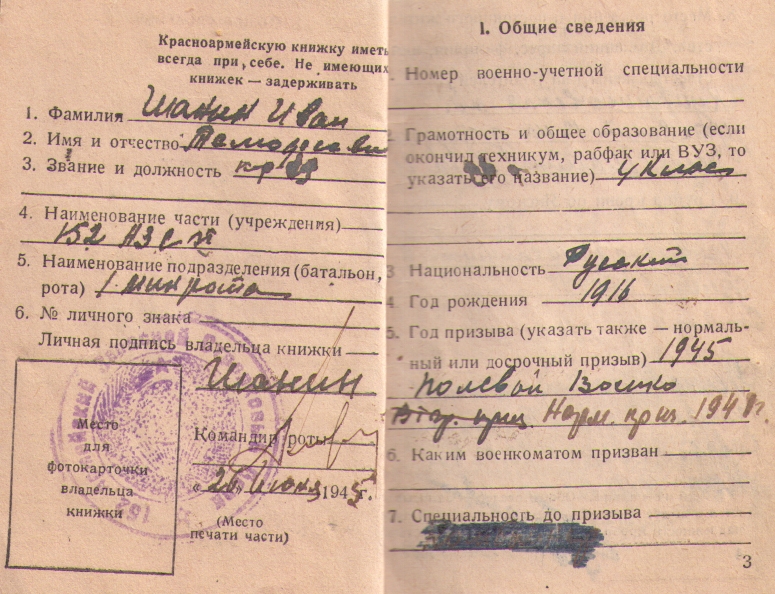 Красноармейскую книжку иметь
всегда при себе. Не имеющих
книжек — задерживать
1. Фамилия Шанин Иван
2. Имя и отчество
3. Звание и должность кр-ц
4. Наименование части (учреждения)
152 АЗСП
5. Наименование подразделения (батальон,
рота) 1 минрота
6. № личного знака
Личная подпись владельца книжки
Шанин
Место
для
фотокарточки
владельца
книжки
Командир роты
«26» июня 1945 г.
(Место
печати части)
1. Общие сведения
1. Номер военно-учетной специальности
2. Грамотность и общее образование (если
окончил техникум, рабфак или ВУЗ, то
указать его название) 4 клас
3 Национальность Русский
4 Год рождения 1916
5. Год призыва (указать также — нормаль-
ный или досрочный призыв) 1945
полевой Военко
Норм. приз. 194
6. Каким военкоматом призван
7. Специальность до призыва
3